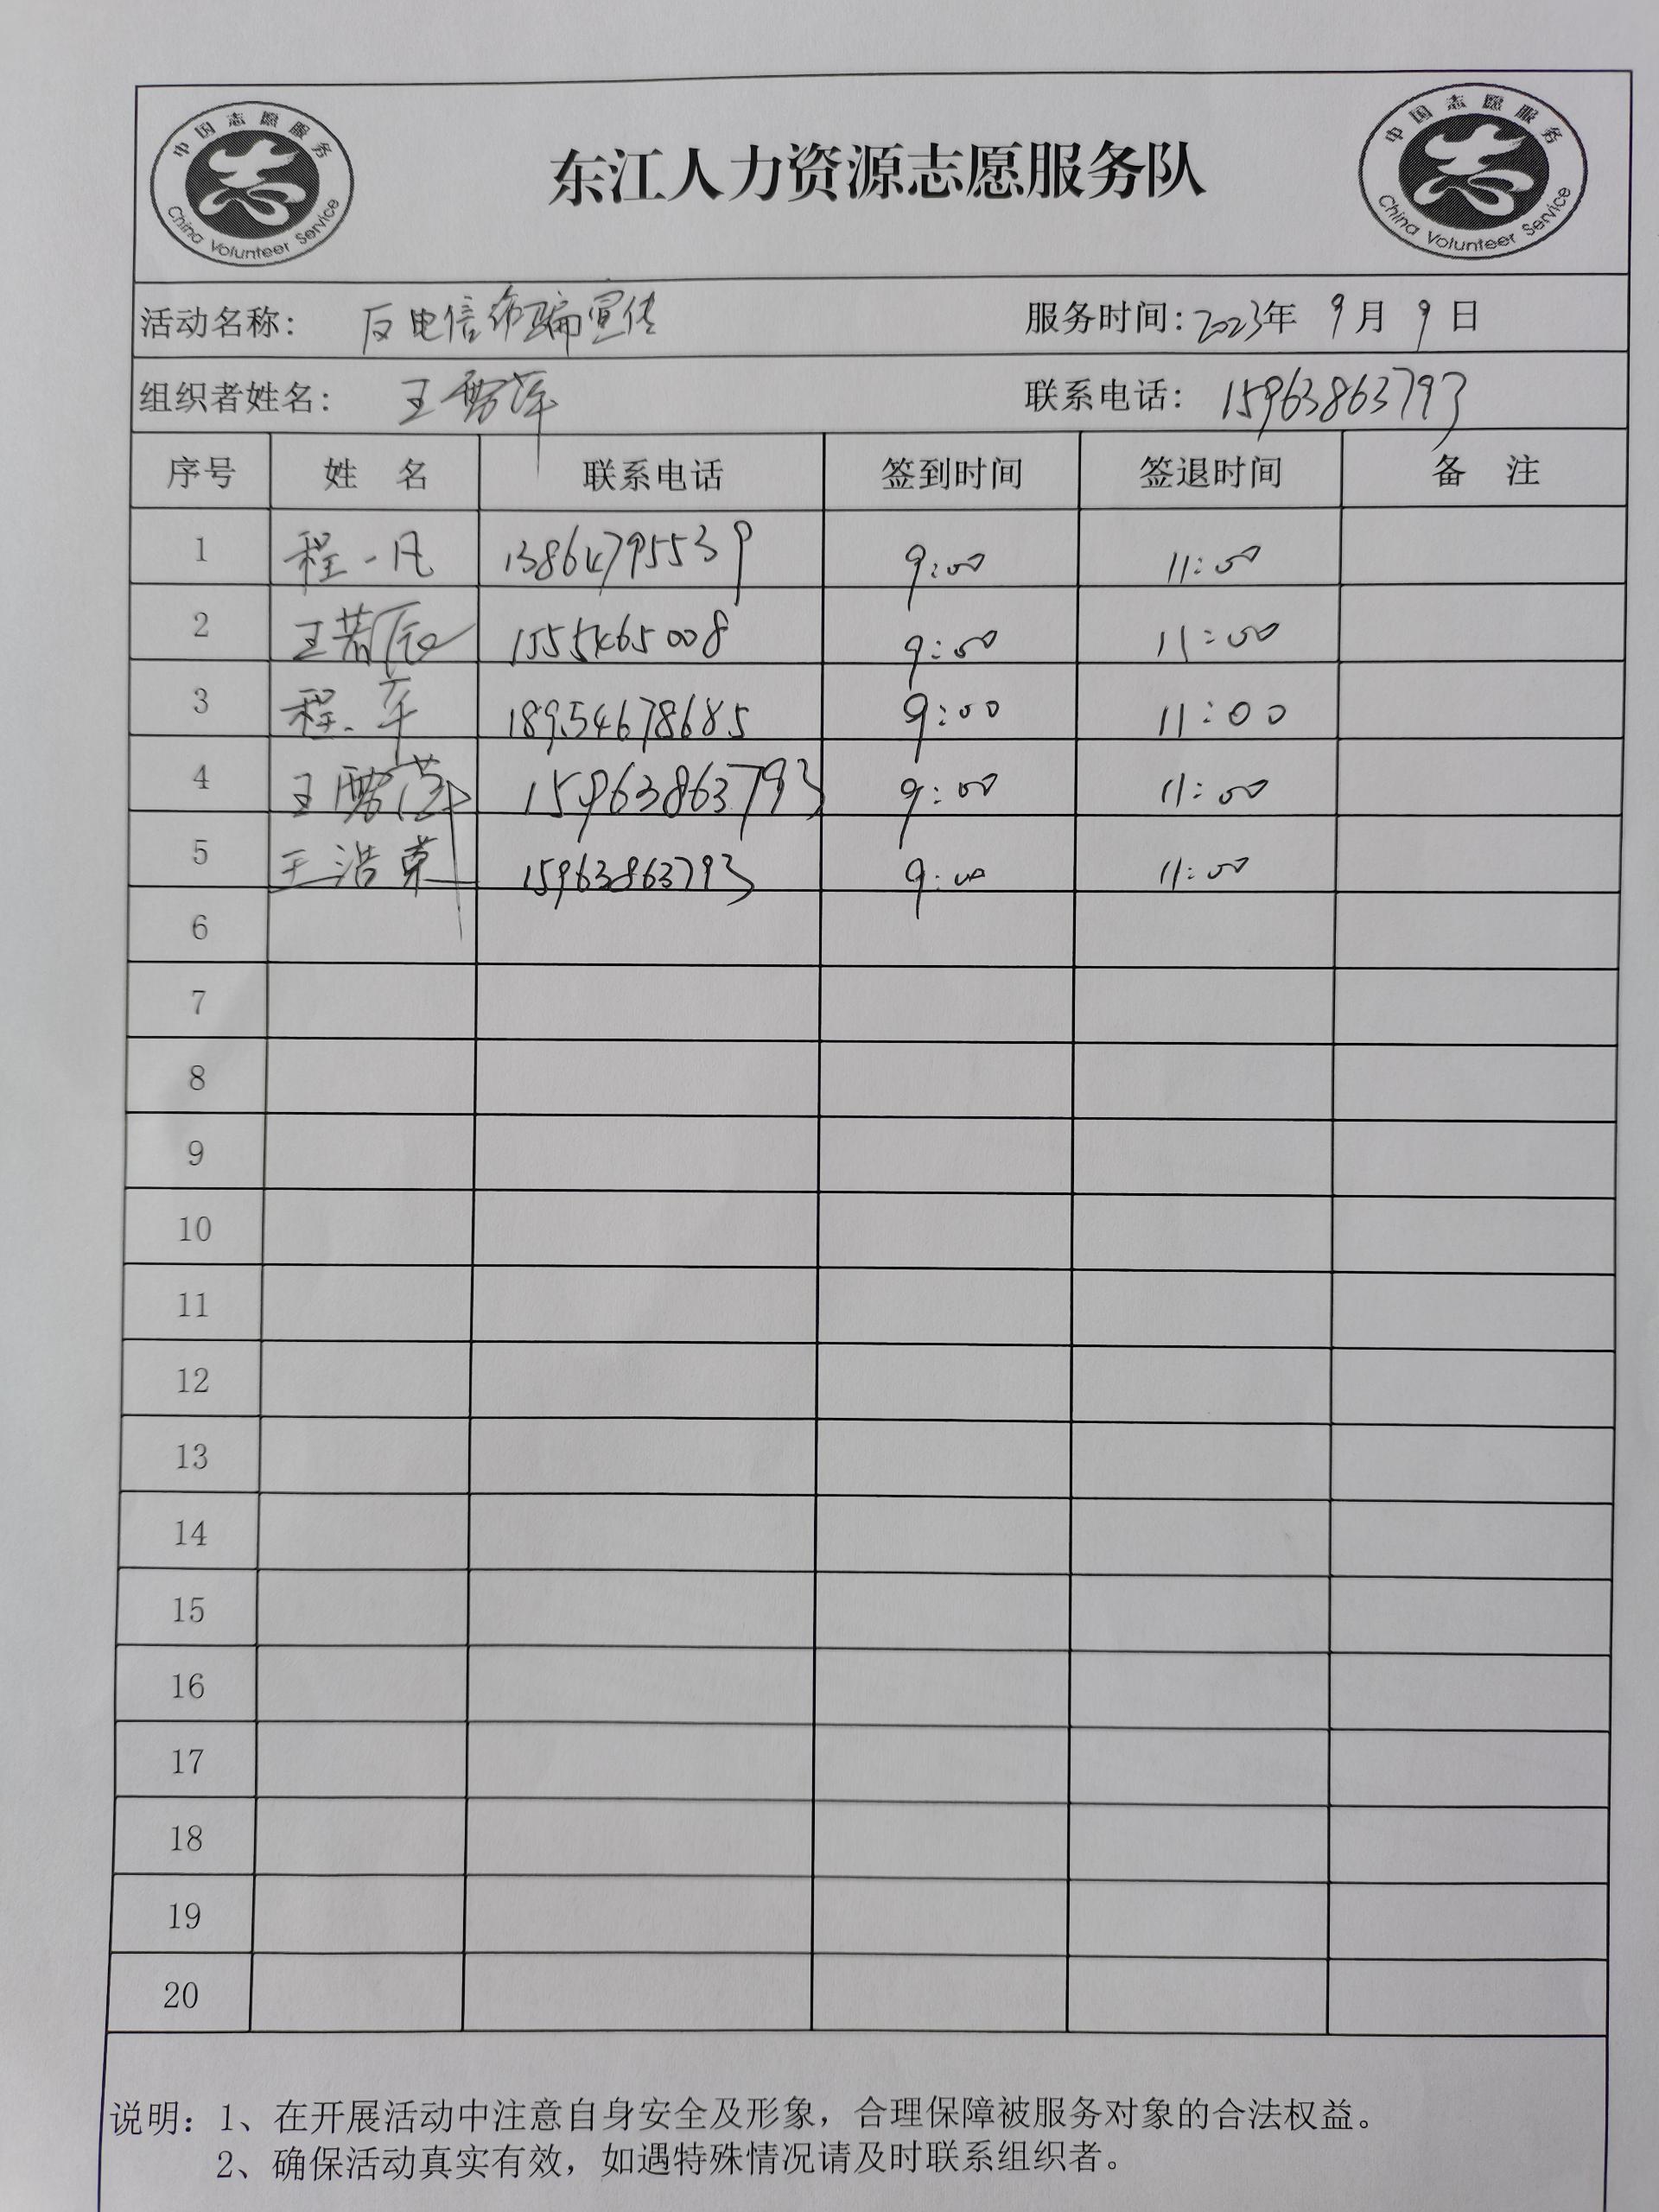 中国志愿服务
China Volunteer Service
东江人力资源志愿服务队
中国志愿服务
China Volunteer Service
活动名称： 反电信诈骗宣传 服务时间：2023年 9月 9日
组织者姓名： 王 萍 联系电话： 15963863793
序号 姓 名 联系电话 签到时间 签退时间 备 注
1 程一凡 13864795539 9:00 11:00
2 王若辰 9:00 11:00
3 程 军 18954678685 9:00 11:00
4 王 萍 15963863793 9:00 11:00
5 王浩東 15963863793 9:00 11:00
6
7
8
9
10
11
12
13
14
15
16
17
18
19
20
说明：1、在开展活动中注意自身安全及形象，合理保障被服务对象的合法权益。
2、确保活动真实有效，如遇特殊情况请及时联系组织者。